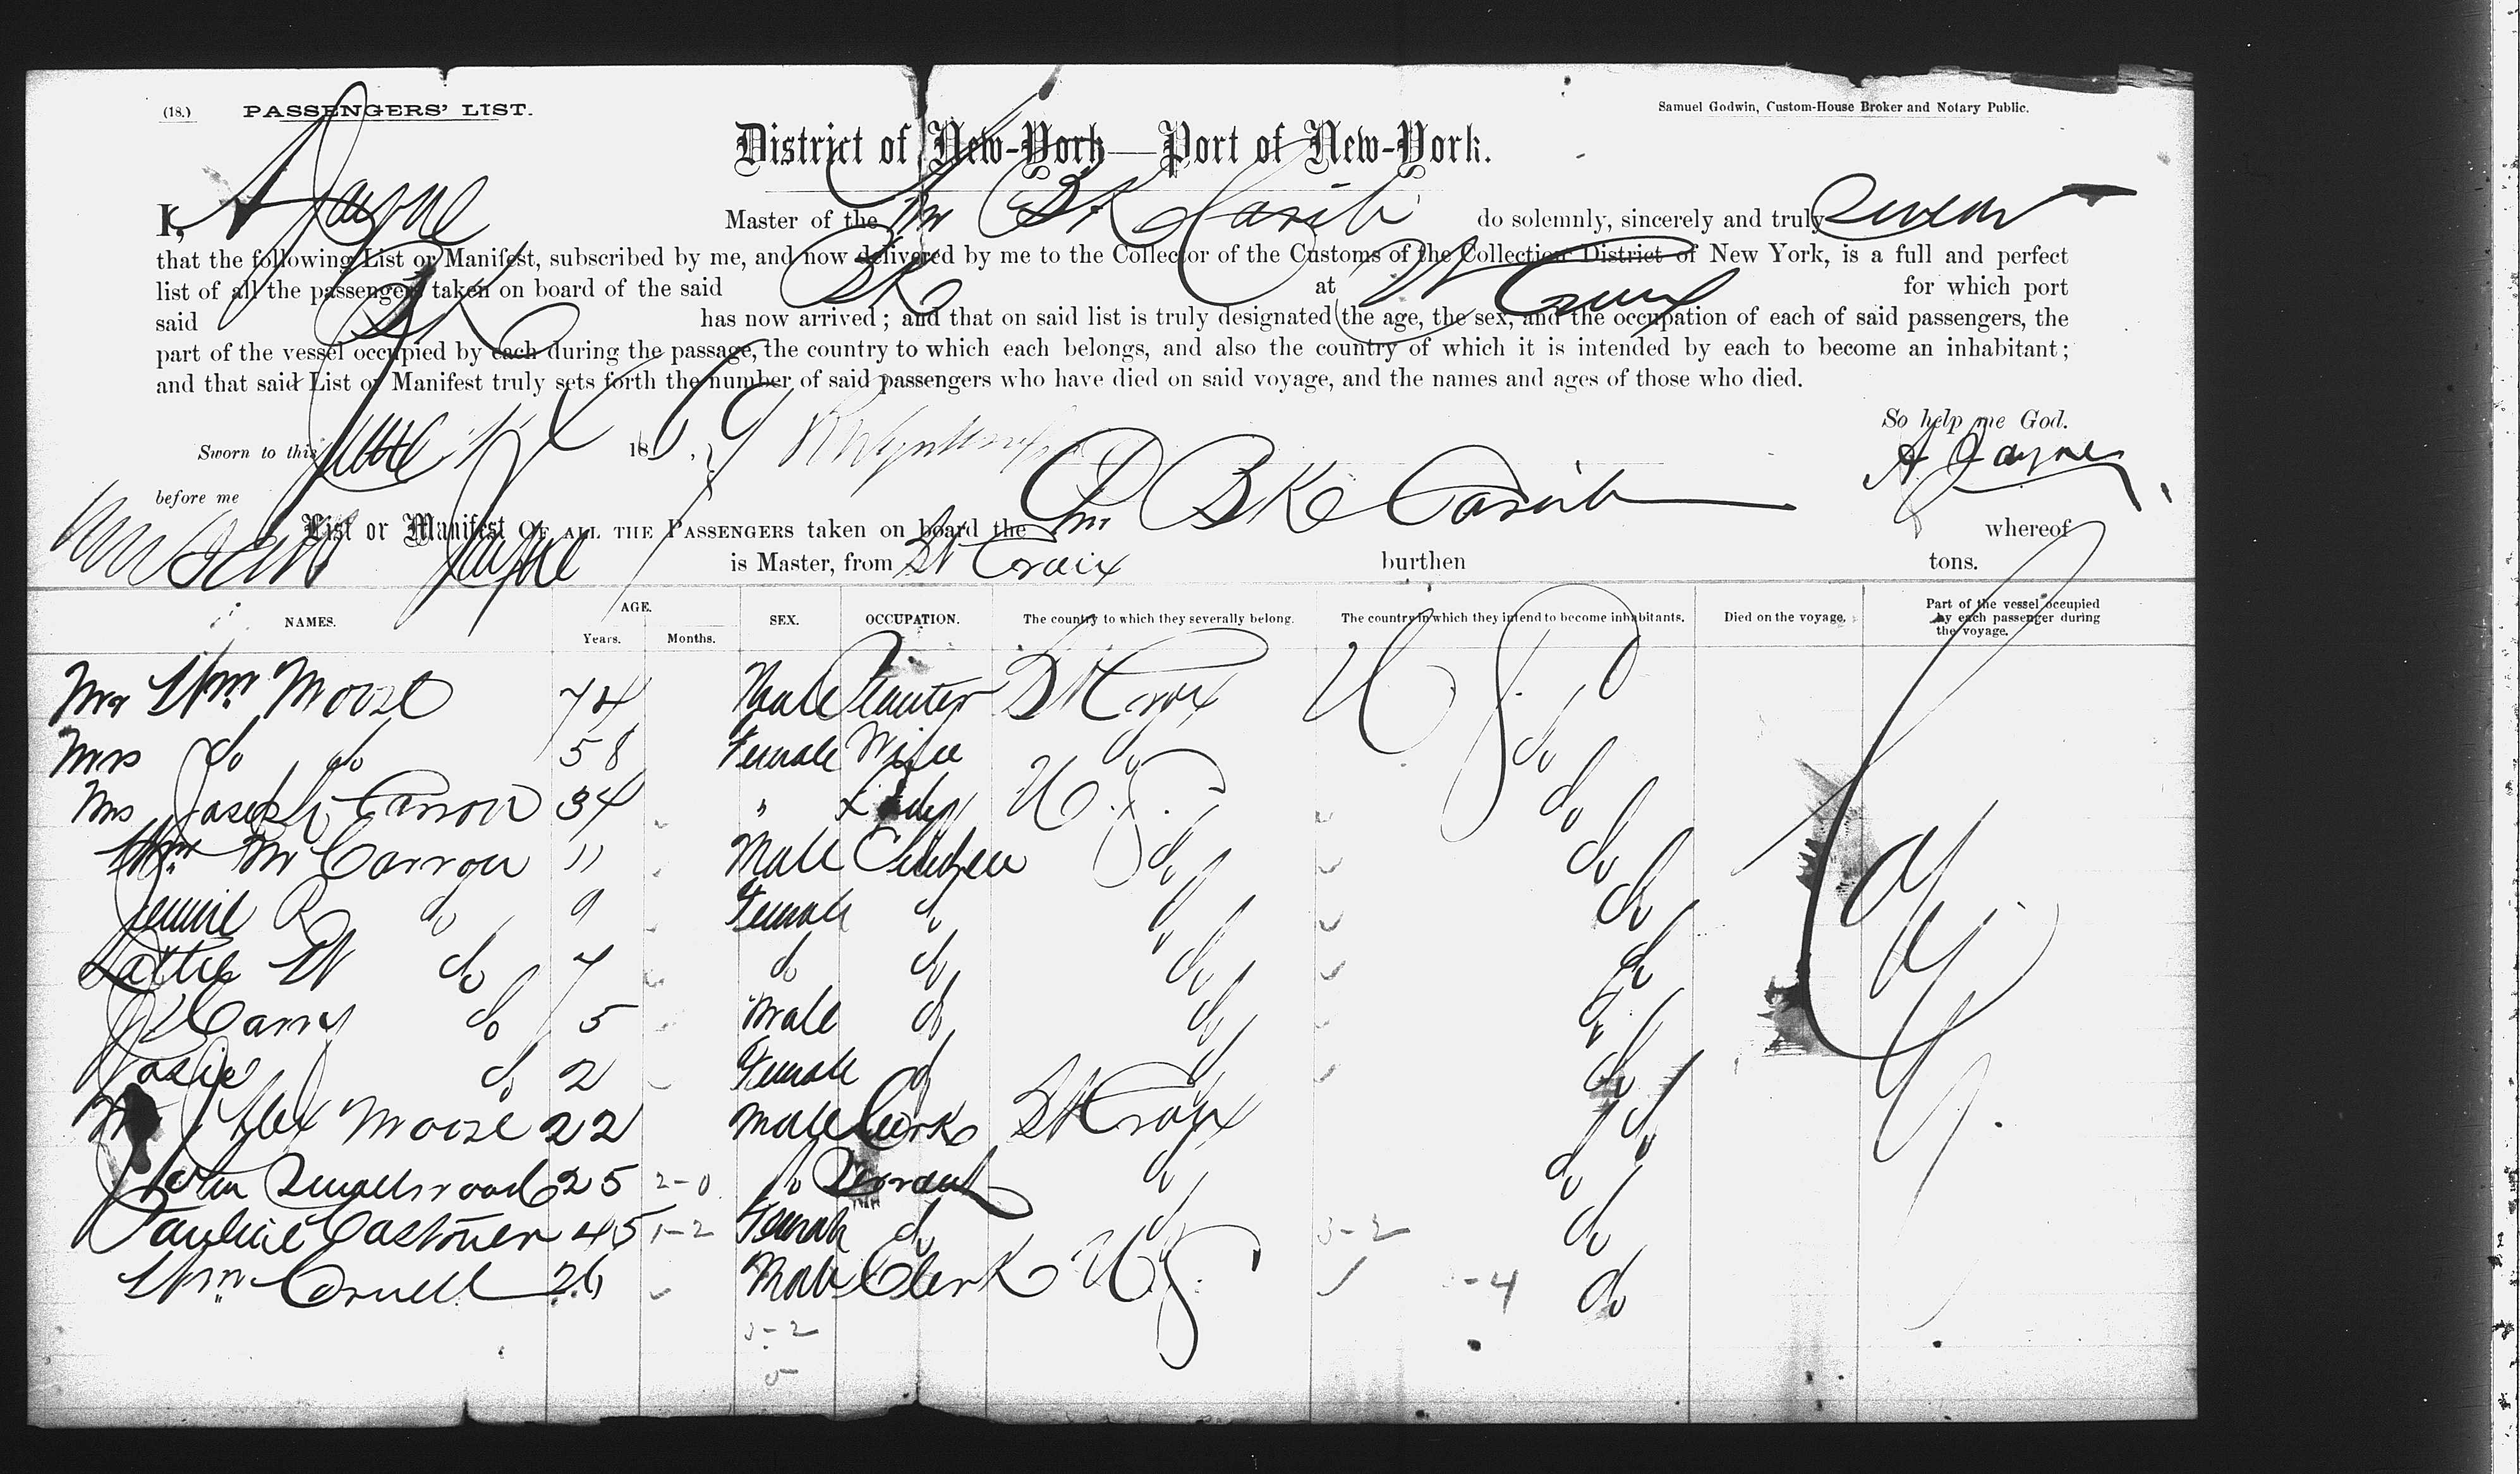 (18.) PASSENGERS' LIST.
Samuel Godwin, Custom-House Broker and Notary Public.
District of New-York—Port of New-York.
I, A Jayne Master of the Am BK Carib do solemnly, sincerely and truly swear
that the following List or Manifest, subscribed by me, and now delivered by me to the Collector of the Customs of the Collection District of New York, is a full and perfect
list of all the passengers taken on board of the said BK at St Croix for which port
said BK has now arrived; and that on said list is truly designated the age, the sex, and the occupation of each of said passengers, the
part of the vessel occupied by each during the passage, the country to which each belongs, and also the country of which it is intended by each to become an inhabitant;
and that said List or Manifest truly sets forth the number of said passengers who have died on said voyage, and the names and ages of those who died.
So help me God.
Sworn to this June 1869
A Jayne
before me
List or Manifest OF ALL THE PASSENGERS taken on board the Am BK Carib whereof
Jayne is Master, from St Croix burthen tons.
NAMES. AGE. Years. Months. SEX. OCCUPATION. The country to which they severally belong. The country in which they intend to become inhabitants. Died on the voyage. Part of the vessel occupied by each passenger during the voyage.
Mr Wm Moore 74 Male Planter St Croix U.S.
Mrs do do 58 Female Wife do do
Mrs Joseph Carson 34 " Lady U.S. do
Wm M Carson 11 Male Children do do
Jennie R do 9 Female do do do
Lottie W do 7 do do do do
Harry do 5 Male do do do
Josie do 2 Female do do do
Mr Alex Moore 22 Male Clerk St Croix do
John Smallwood 25 2-0 " Servant do do
Pauline 45 1-2 Female do do 3-2 do
Wm Cornell 26 Male Clerk U.S. -4 do
3-2
5